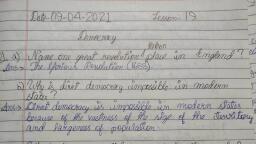 Date-09-04-2021 Lesson 19
Democracy
taken
1. a) Name one great revolution place in England?
Ans→ The Glorious Revolution (1688)
b) Why is direct democracy impossible in modern
states?
Ans→ Direct democracy is impossible in modern states
because of the vastness of the size of the territory
and largeness of population.